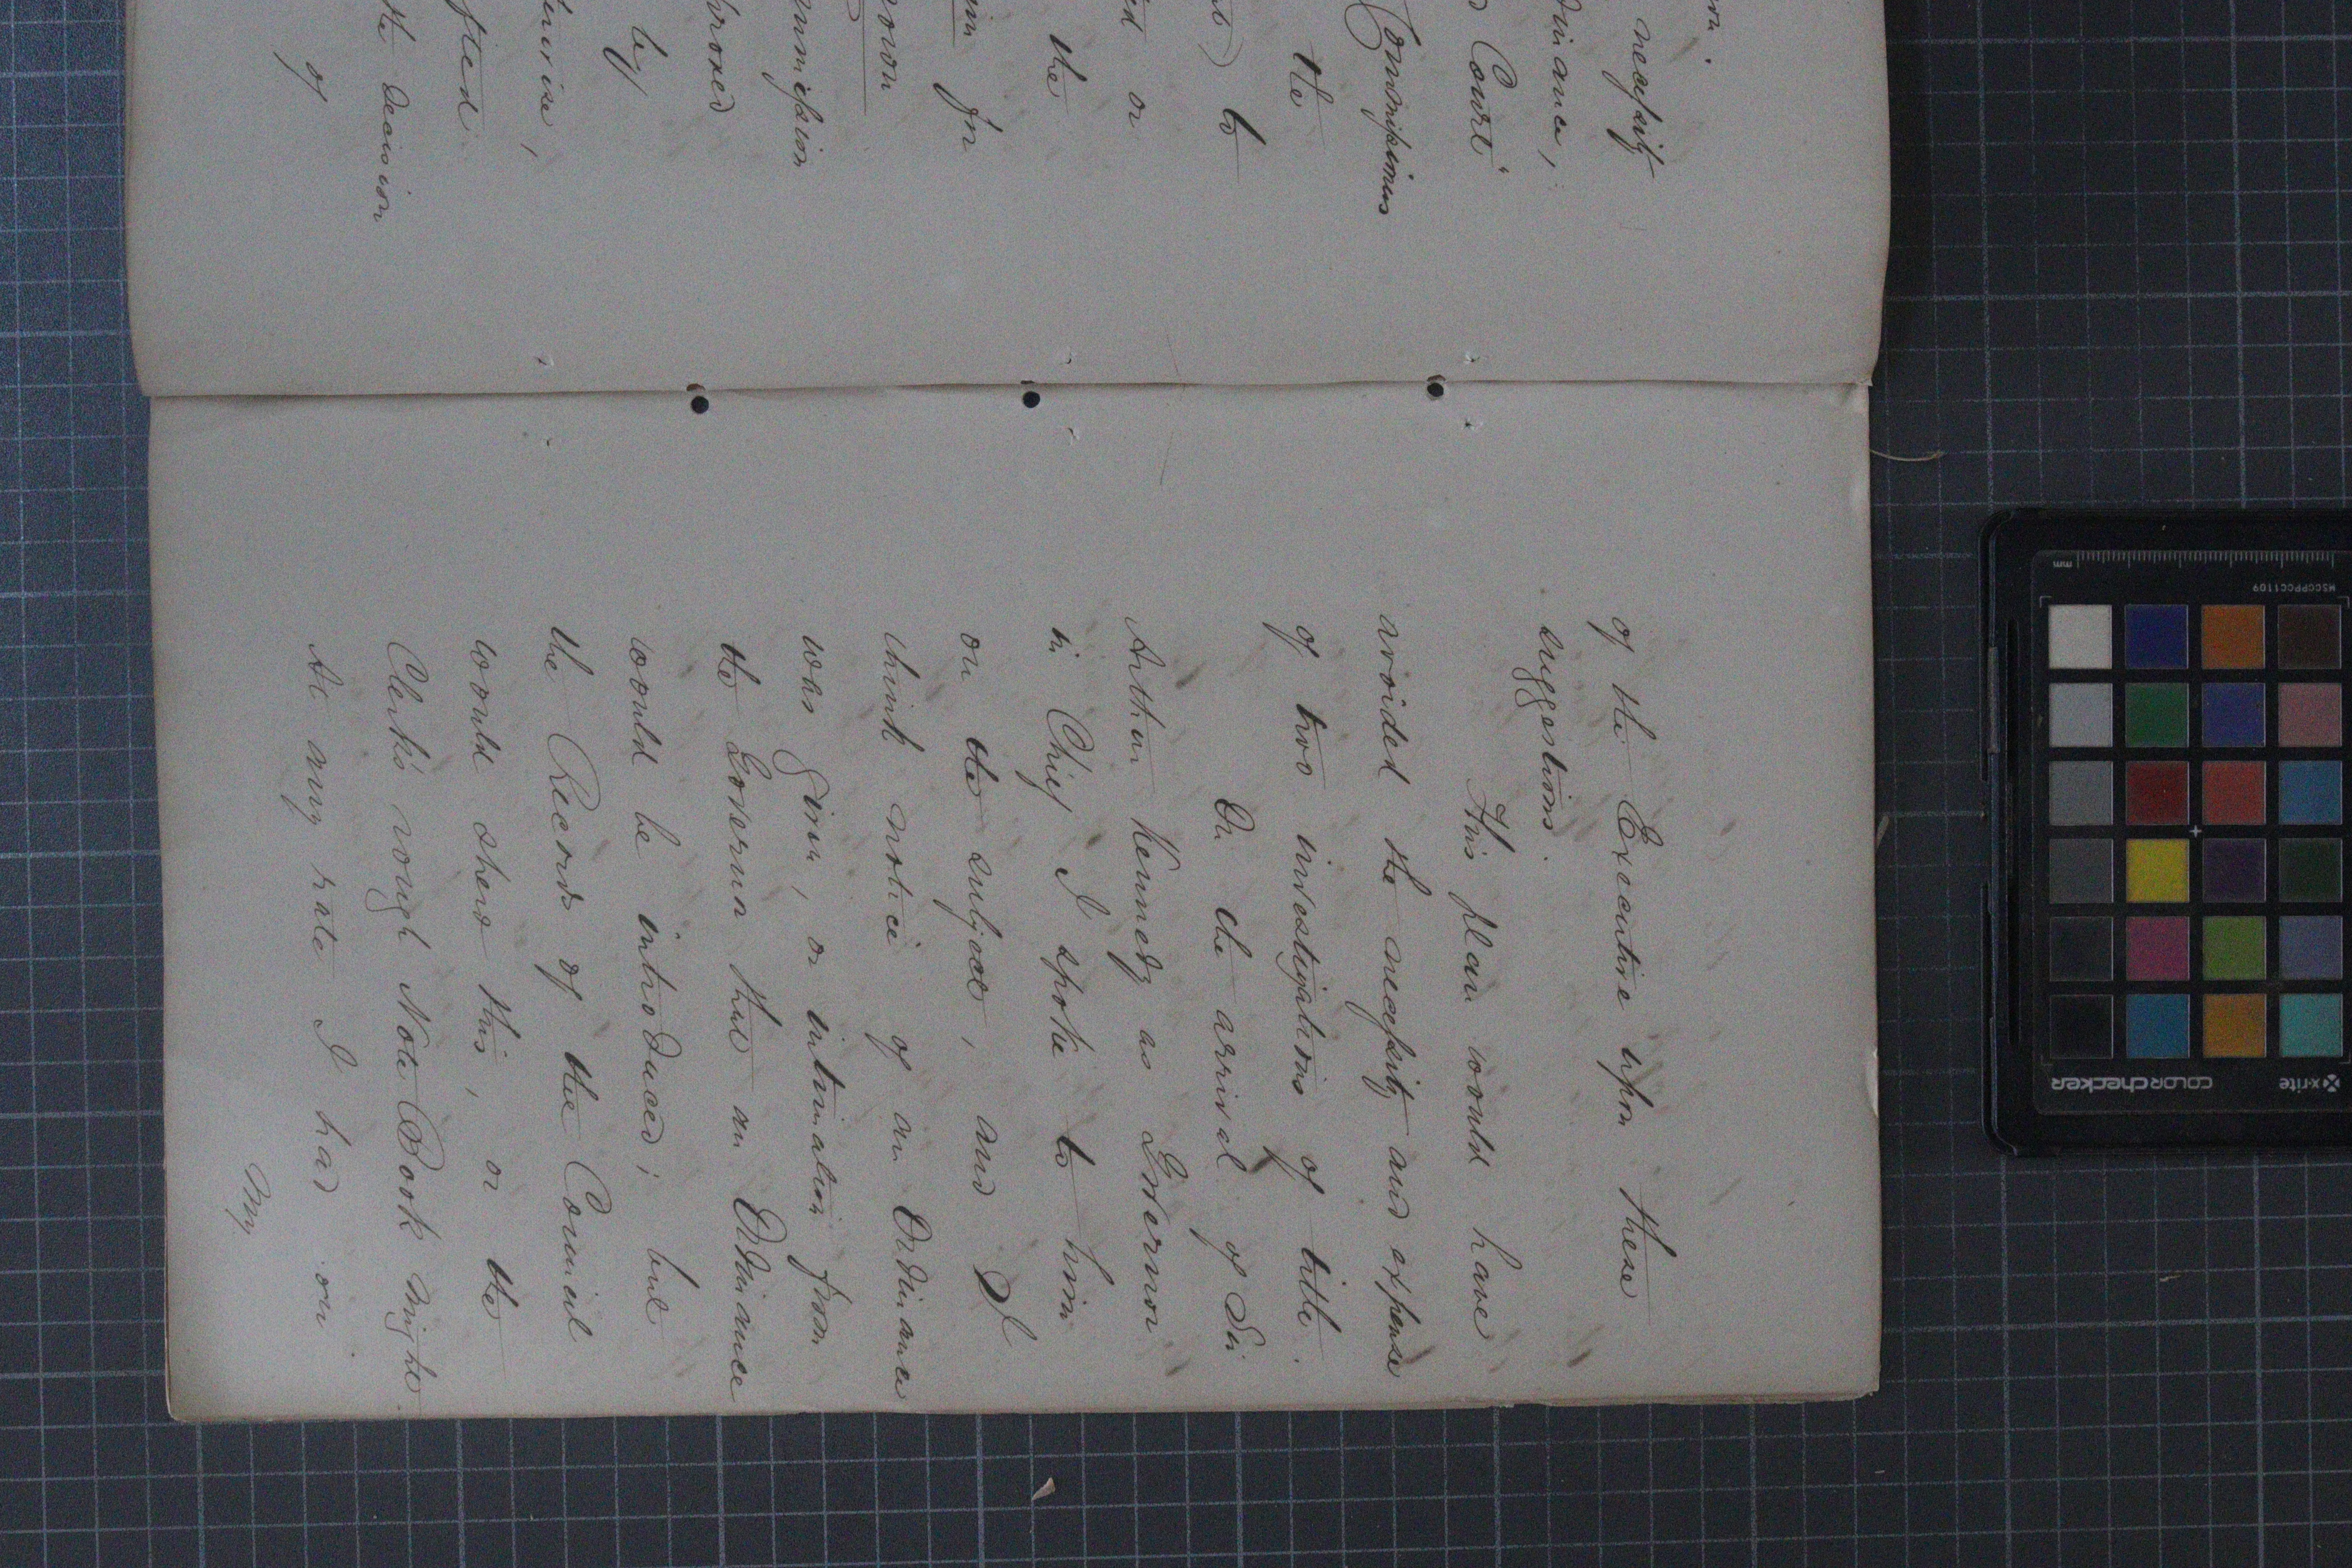 necessity
Court
Commissioners
the
to
or
the
in
by
the decision
of
of the Executive upon these
suggestions.
This plan would have
avoided the necessity and expense
of two investigations of title.
On the arrival of Sir
Arthur Kennedy as Governor
in Chief I spoke to him
on the subject, and I
think notice of an Ordinance
was given, or intimation from
the Governor that an Ordinance
would be introduced; but
the Records of the Council
would shew this, or the
Clerk's rough Note Book might.
At any rate I had on
My
mm
MSCCPPCC1109
x-rite
colorchecker